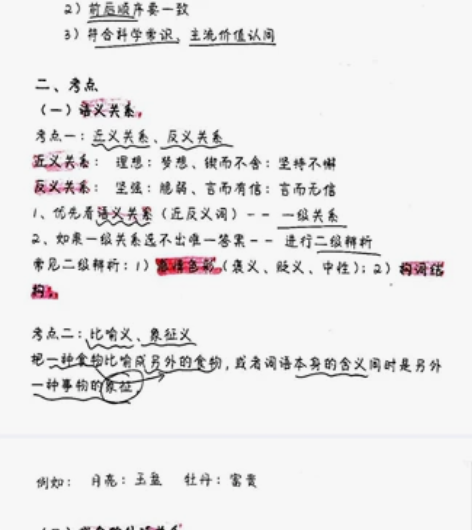 2) 前后顺序要一致
3) 符合科学常识，主流价值认同
二、考点
(一) 语义关系，
考点一：近义关系、反义关系
近义关系： 理想：梦想、锲而不舍：坚持不懈
反义关系： 坚强：脆弱、言而有信：言而无信
1、优先看语义关系（近反义词）-- 一级关系
2、如果一级关系选不出唯一答案-- 进行二级辨析
常见二级辨析：1) 感情色彩（褒义、贬义、中性）；2) 构词结
构；
考点二：比喻义、象征义
把一种食物比喻成另外的食物，或者词语本身的含义同时是另外
一种事物的象征
例如： 月亮：玉盘 牡丹：富贵